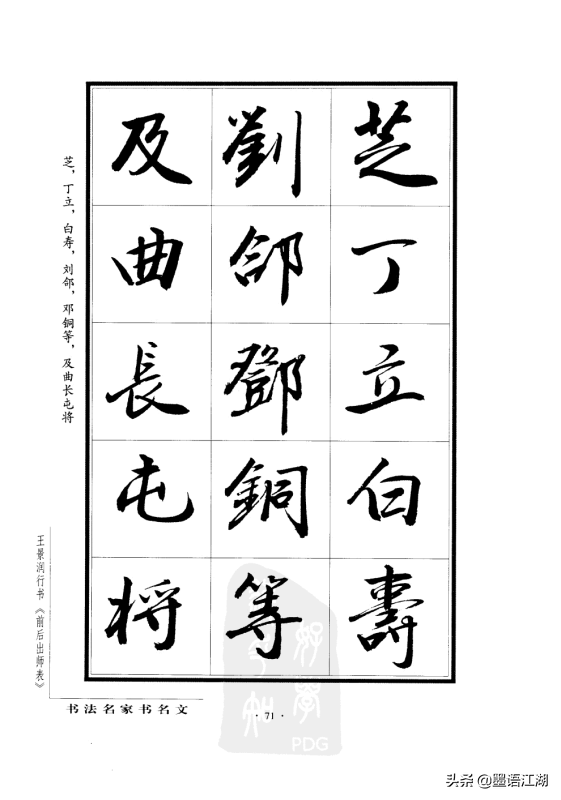 芝丁立白壽
劉郃鄧銅等
及曲長屯将
芝，丁立，白寿，刘郃，邓铜等，及曲长屯将
王景润行书《前后出师表》
书法名家书名文
·71·
好學
PDG
头条@墨语江湖